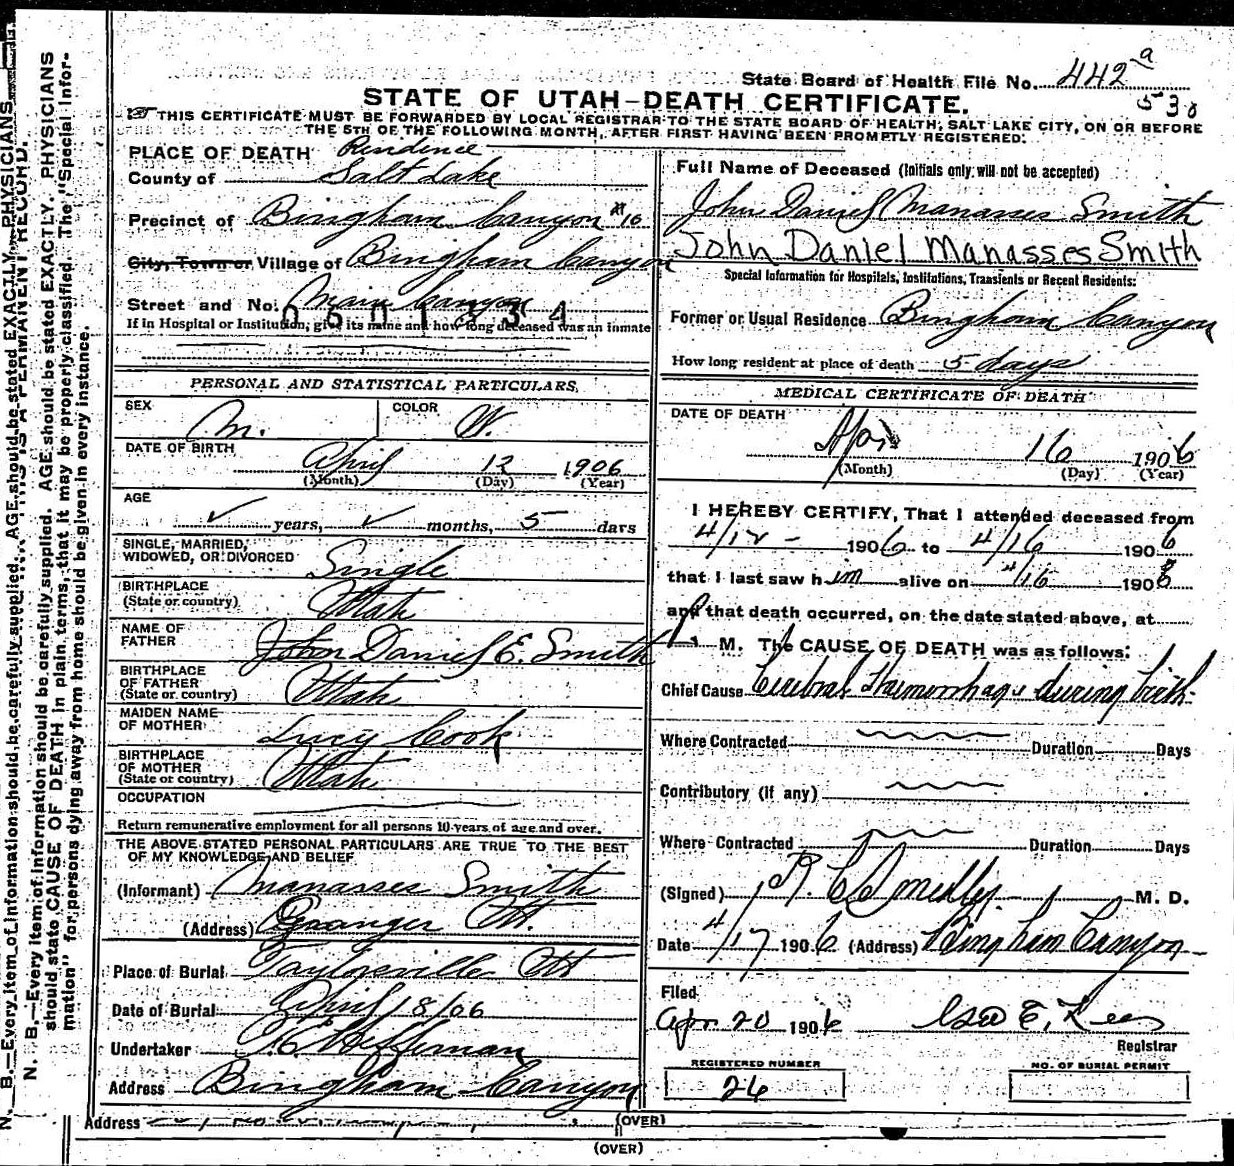 State Board of Health File No. 442 a
530
STATE OF UTAH-DEATH CERTIFICATE.
THIS CERTIFICATE MUST BE FORWARDED BY LOCAL REGISTRAR TO THE STATE BOARD OF HEALTH, SALT LAKE CITY, ON OR BEFORE
THE 5TH OF THE FOLLOWING MONTH, AFTER FIRST HAVING BEEN PROMPTLY REGISTERED.
PLACE OF DEATH
County of Salt Lake
Precinct of Bingham Canyon # 16
City, Town or Village of Bingham Canyon
Street and No. Main Canyon
0601334
If in Hospital or Institution, give its name and how long deceased was an inmate
PERSONAL AND STATISTICAL PARTICULARS.
SEX M. COLOR W.
DATE OF BIRTH April 12 1906
(Month) (Day) (Year)
AGE
years, months, 5 days
SINGLE, MARRIED,
WIDOWED, OR DIVORCED Single
BIRTHPLACE
(State or country) Utah
NAME OF
FATHER John Daniel E. Smith
BIRTHPLACE
OF FATHER
(State or country) Utah
MAIDEN NAME
OF MOTHER Lucy Cook
BIRTHPLACE
OF MOTHER
(State or country) Utah
OCCUPATION
Return remunerative employment for all persons 10 years of age and over.
THE ABOVE STATED PERSONAL PARTICULARS ARE TRUE TO THE BEST
OF MY KNOWLEDGE AND BELIEF
(Informant) Manasses Smith
(Address) Granger Ut.
Place of Burial Taylorsville Ut
Date of Burial April 18/06
Undertaker Heffernan
Address Bingham Canyon
Address
(OVER)
(OVER)
Full Name of Deceased (Initials only will not be accepted)
John Daniel Manasses Smith
John Daniel Manasses Smith
Special Information for Hospitals, Institutions, Transients or Recent Residents:
Former or Usual Residence Bingham Canyon
How long resident at place of death 5 days
MEDICAL CERTIFICATE OF DEATH
DATE OF DEATH
16 1906
(Month) (Day) (Year)
I HEREBY CERTIFY, That I attended deceased from
4/12 - 1906 to 4/16 1906
that I last saw him alive on 4/16 1906
and that death occurred, on the date stated above, at
M. The CAUSE OF DEATH was as follows:
Chief Cause Cerebral Haemorrhage during birth
Where Contracted Duration Days
Contributory (if any)
Where Contracted Duration Days
(Signed) M. D.
Date 4/17 1906 (Address) Bingham Canyon
Filed
Apr 20 1906
Registrar
REGISTERED NUMBER
26
NO. OF BURIAL PERMIT
N. B.—Every item of information should be carefully supplied. AGE should be stated EXACTLY. PHYSICIANS
should state CAUSE OF DEATH in plain terms, that it may be properly classified. The "Special Infor-
mation" for persons dying away from home should be given in every instance.
N. B.—Every item of information should be carefully supplied. AGE should be stated EXACTLY. PHYSICIANS